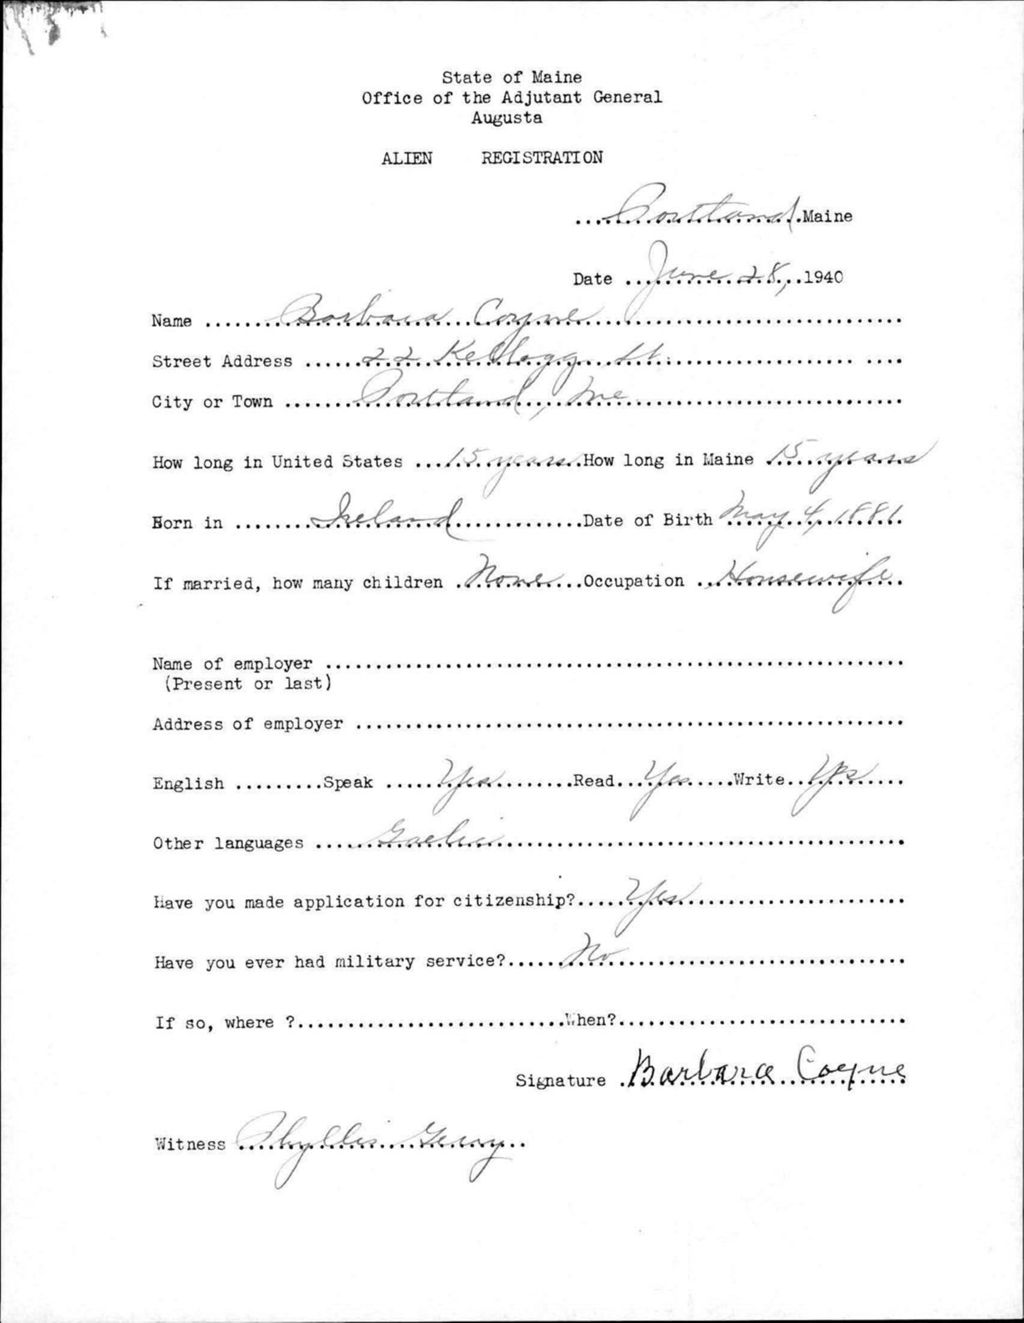 State of Maine
Office of the Adjutant General
Augusta
ALIEN REGISTRATION
Portland Maine
Date June 28, 1940
Name Barbara Coyne
Street Address 22 Kellogg St.
City or Town Portland, Me
How long in United States 15 years How long in Maine 15 years
Born in Ireland Date of Birth May 4, 1881
If married, how many children None Occupation Housewife
Name of employer
(Present or last)
Address of employer
English Speak Yes Read Yes Write Yes
Other languages Gaelic
Have you made application for citizenship? Yes
Have you ever had military service? No
If so, where ? When?
Signature Barbara Coyne
Witness Phyllis Geary